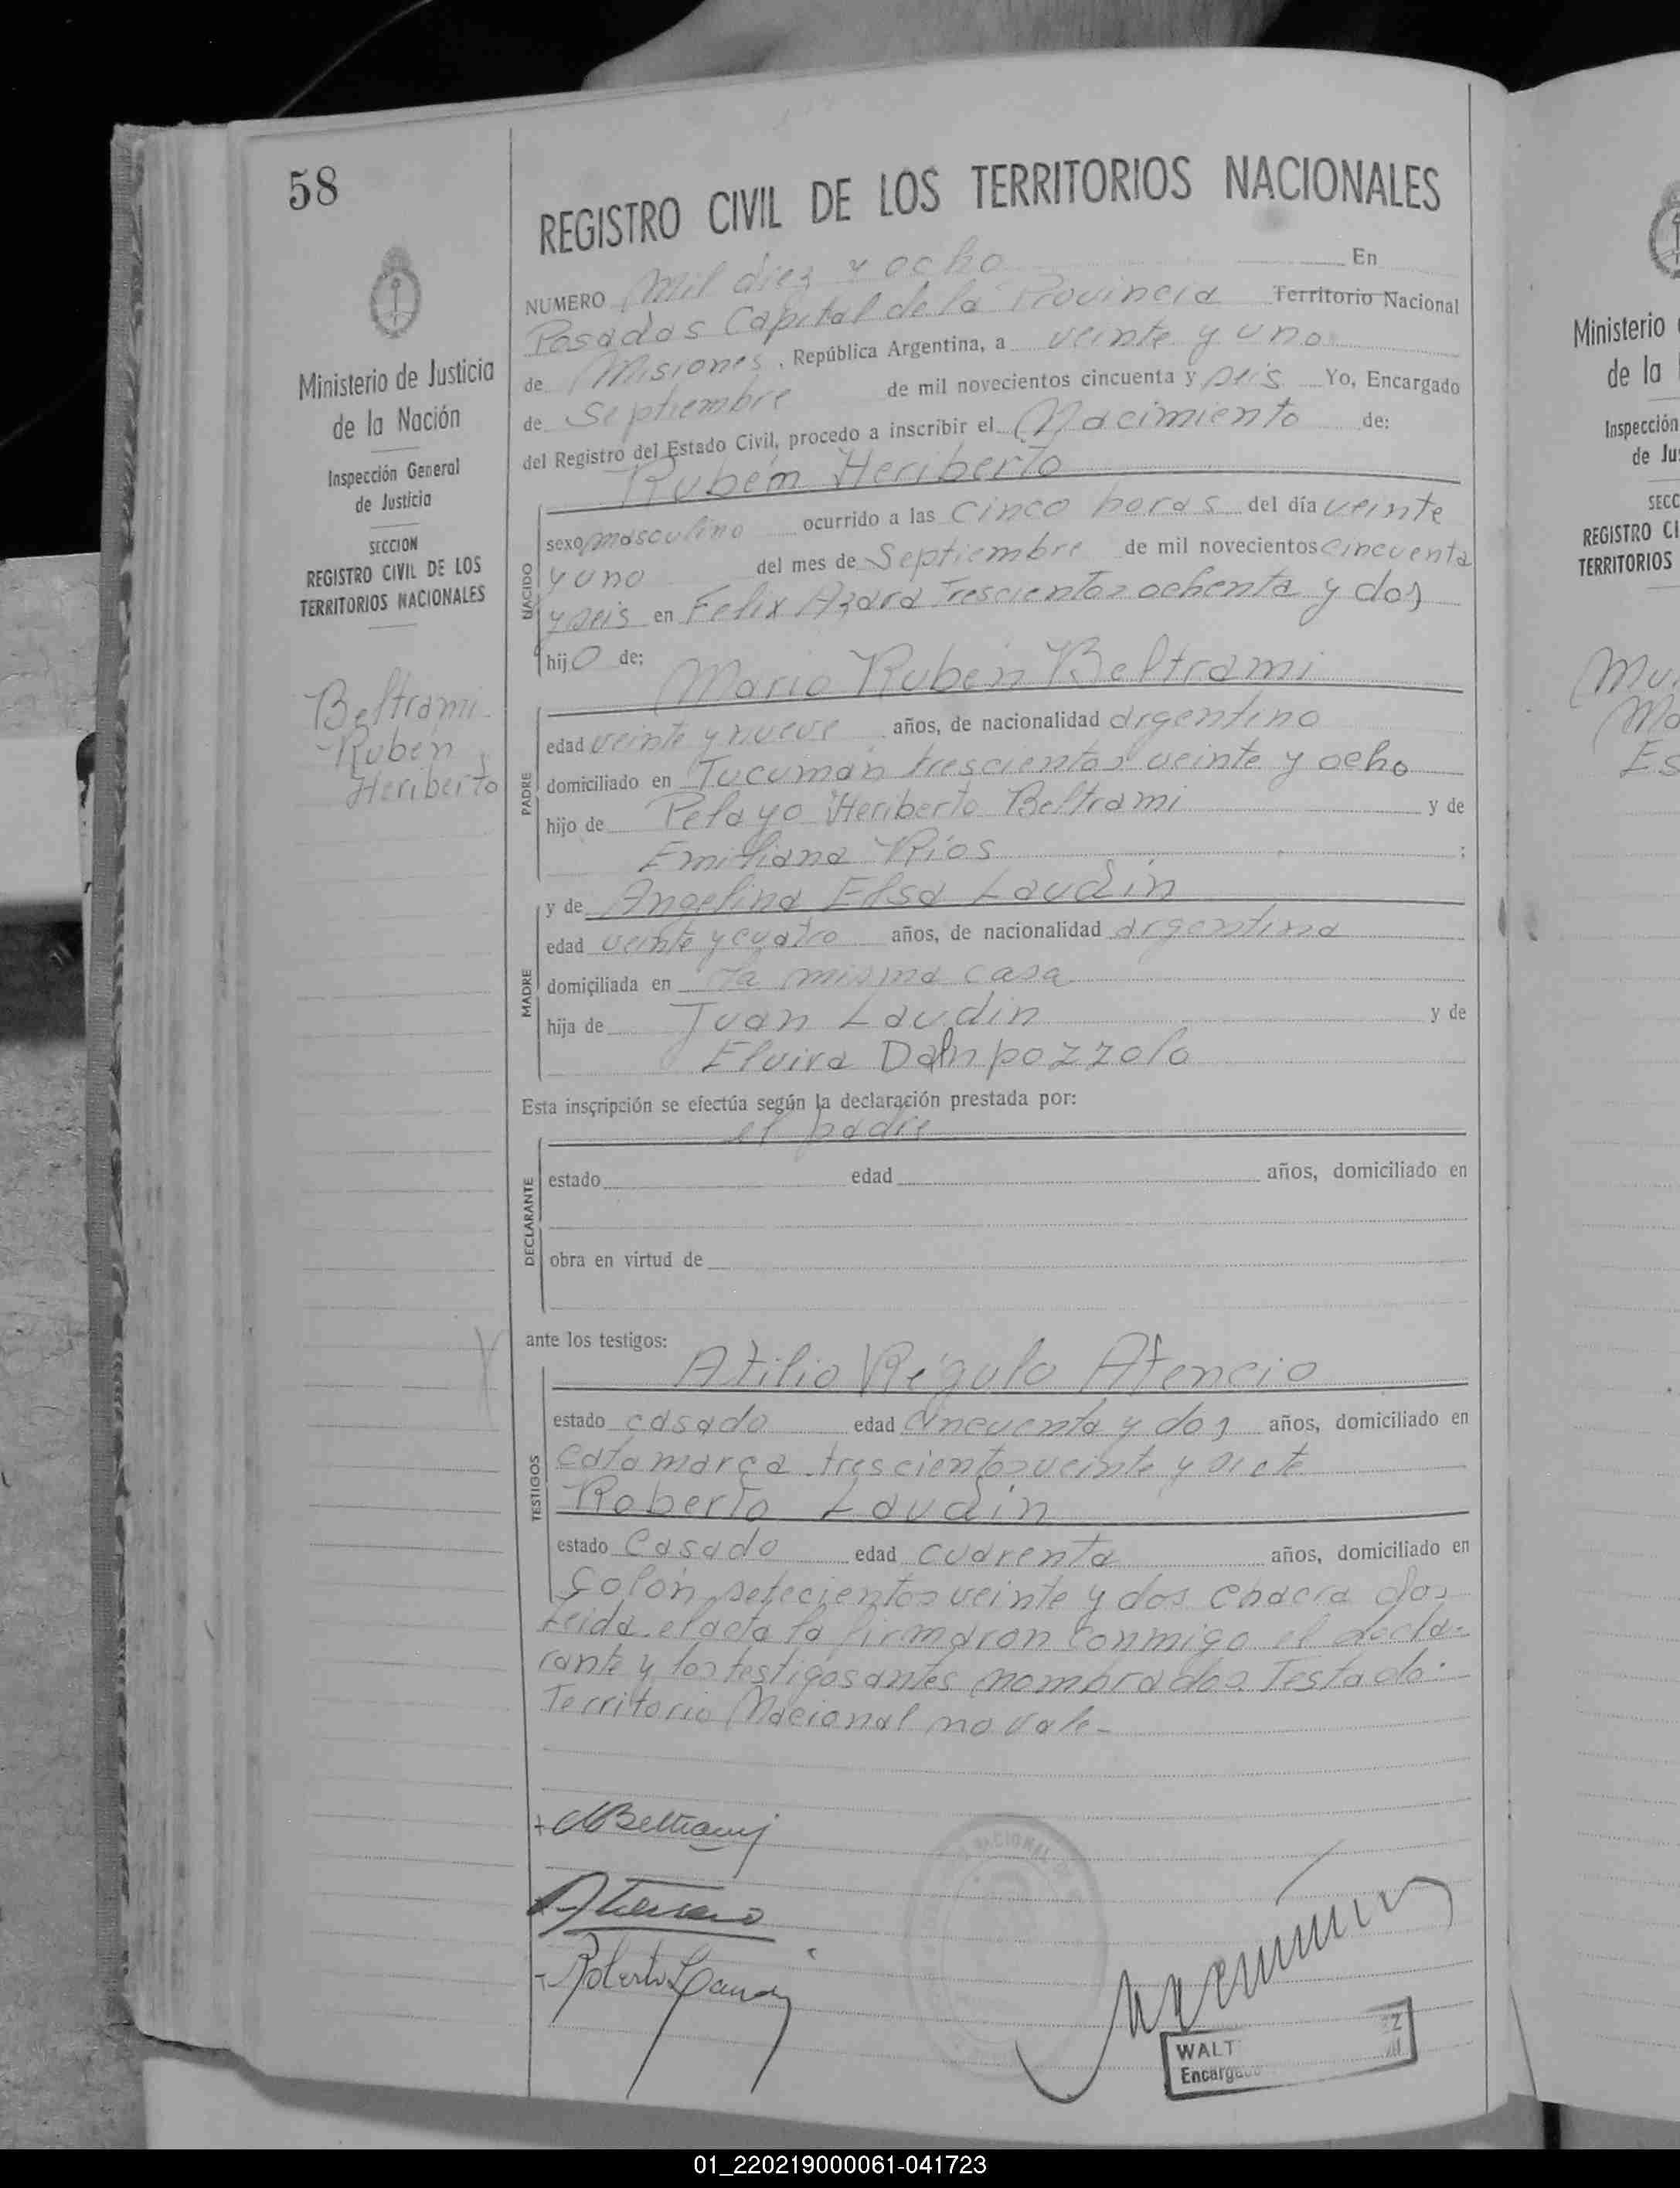 58
REGISTRO CIVIL DE LOS TERRITORIOS NACIONALES
NUMERO Mil diez y ocho En
Posadas Capital de la Provincia Territorio Nacional
de Misiones, República Argentina, a veinte y uno
de Septiembre de mil novecientos cincuenta y seis Yo, Encargado
del Registro del Estado Civil, procedo a inscribir el Nacimiento de:
Rubén Heriberto
NACIDO
sexo masculino ocurrido a las cinco horas del día veinte
y uno del mes de Septiembre de mil novecientos cincuenta
y seis en Felix Azara Trescientos ochenta y dos
hijo de:
Mario Rubén Beltrami
PADRE
edad veinte y nueve años, de nacionalidad argentino
domiciliado en Tucumán trescientos veinte y ocho
hijo de Pelayo Heriberto Beltrami y de
Emiliana Ríos ;
MADRE
y de Angelina Elsa Laudin
edad veinte y cuatro años, de nacionalidad argentina
domiciliada en la misma casa
hija de Juan Laudin y de
Elvira Dalnpozzolo
Esta inscripción se efectúa según la declaración prestada por:
el padre
DECLARANTE
estado edad años, domiciliado en
obra en virtud de
ante los testigos:
Atilio Régulo Atencio
TESTIGOS
estado casado edad cincuenta y dos años, domiciliado en
Catamarca trescientos veinte y siete
Roberto Laudin
estado Casado edad cuarenta años, domiciliado en
Colón setecientos veinte y dos chacra dos
Leida el acta la firmaron conmigo el decla-
rante y los testigos antes nombrados. Testado:
Territorio Nacional no vale-
MBeltrami
Atencio
Roberto Laudin
NACIONAL
WALT
Encargado
Ministerio de Justicia
de la Nación
Inspección General
de Justicia
SECCION
REGISTRO CIVIL DE LOS
TERRITORIOS NACIONALES
Beltrami
Rubén
Heriberto
Ministerio
de la
Inspección
de Ju
SECC
REGISTRO CI
TERRITORIOS
Mu
Mo
Es
01_220219000061-041723